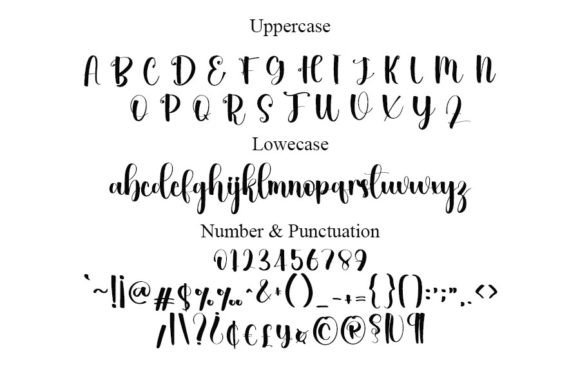 Uppercase
A B C D E F G H I J K L M N
O P Q R S T U V X Y Z
Lowecase
abcdefghijklmnopqrstuvwxyz
Number & Punctuation
0123456789
`~!¡@#$%‰^&*()_-+={}[]:';",.<>
/|\?¿¢€£¥¤©®§№¶